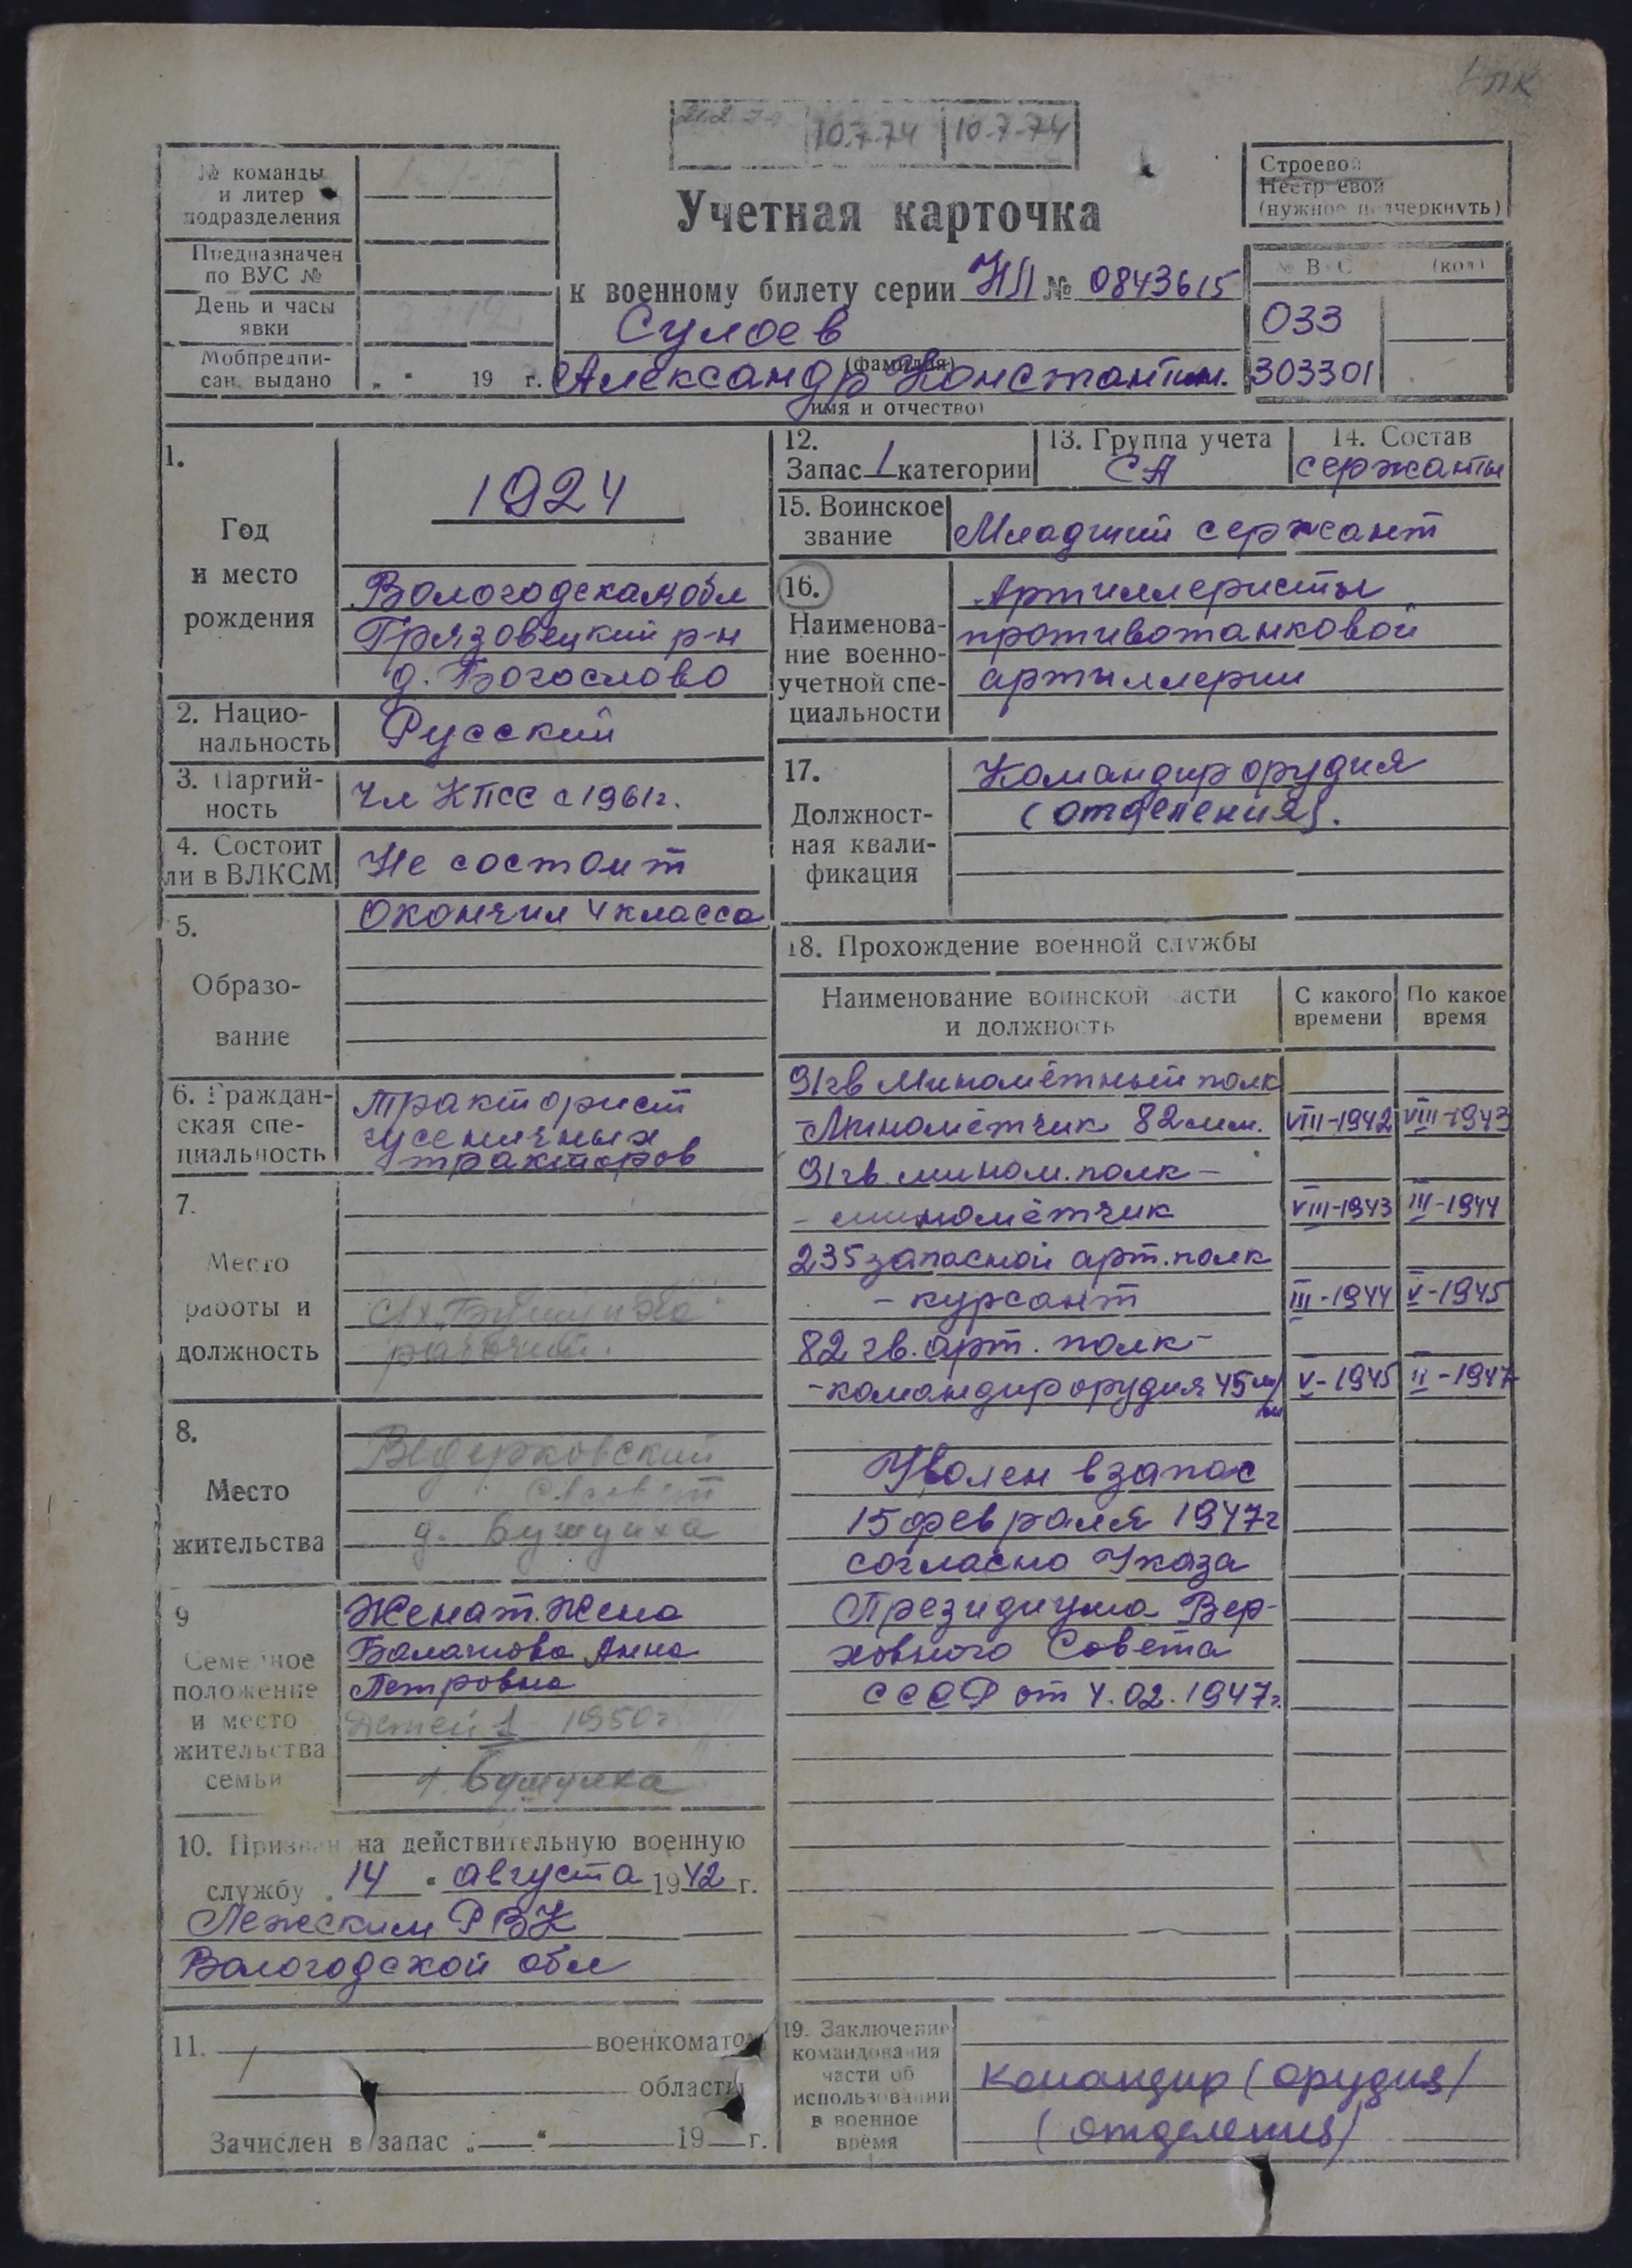 10.7.74
10.7.74
№ команды
и литер
подразделения
Предназначен
по ВУС №
День и часы
явки
Мобпредпи-
сан. выдано „ " 19 г.
Учетная карточка
к военному билету серии НЛ № 0843615
Сулоев
(фамилия)
Александр Константин.
(имя и отчество)
Строевой
Нестроевой
(нужное подчеркнуть)
№ ВУС (код)
033
303301
1.
Год
и место
рождения
1924
Вологодская обл
Грязовецкий р-н
д. Богослово
2. Нацио-
нальность
Русский
3. Партий-
ность
Чл КПСС с 1961г.
4. Состоит
ли в ВЛКСМ
Не состоит
5.
Образо-
вание
Окончил 4 класса
6. Граждан-
ская спе-
циальность
Тракторист
гусеничных
тракторов
7.
Место
работы и
должность
рабочий.
8.
Место
жительства
Ведерковский
с/совет
д. Бушуиха
9
Семейное
положение
и место
жительства
семьи
Женат. Жена
Балашова Анна
Петровна
Детей 1 1950г
10. Призван на действительную военную
службу „14" августа 1942 г.
Лежским РВК
Вологодской обл
11. военкоматом
области
Зачислен в запас „ — " 19 — г.
12.
Запас 1 категории
13. Группа учета
СА
14. Состав
сержанты
15. Воинское
звание
Младший сержант
16.
Наименова-
ние военно-
учетной спе-
циальности
Артиллеристы
противотанковой
артиллерии
17.
Должност-
ная квали-
фикация
Командир орудия
(отделения).
18. Прохождение военной службы
Наименование воинской части
и должность
С какого
времени
По какое
время
91гв Миномётный полк
-Миномётчик 82 мм. VIII-1942 VIII-1943
91гв. мином. полк -
- миномётчик VIII-1943 III-1944
235 запасной арт. полк
- курсант III-1944 V-1945
82 гв. арт. полк -
- командир орудия 45 м/м V-1945 II-1947
Уволен в запас
15 февраля 1947г
согласно Указа
Президиума Вер-
ховного Совета
СССР от 4.02.1947г.
19. Заключение
командования
части об
использовании
в военное
время
командир (орудия)
(отделения)